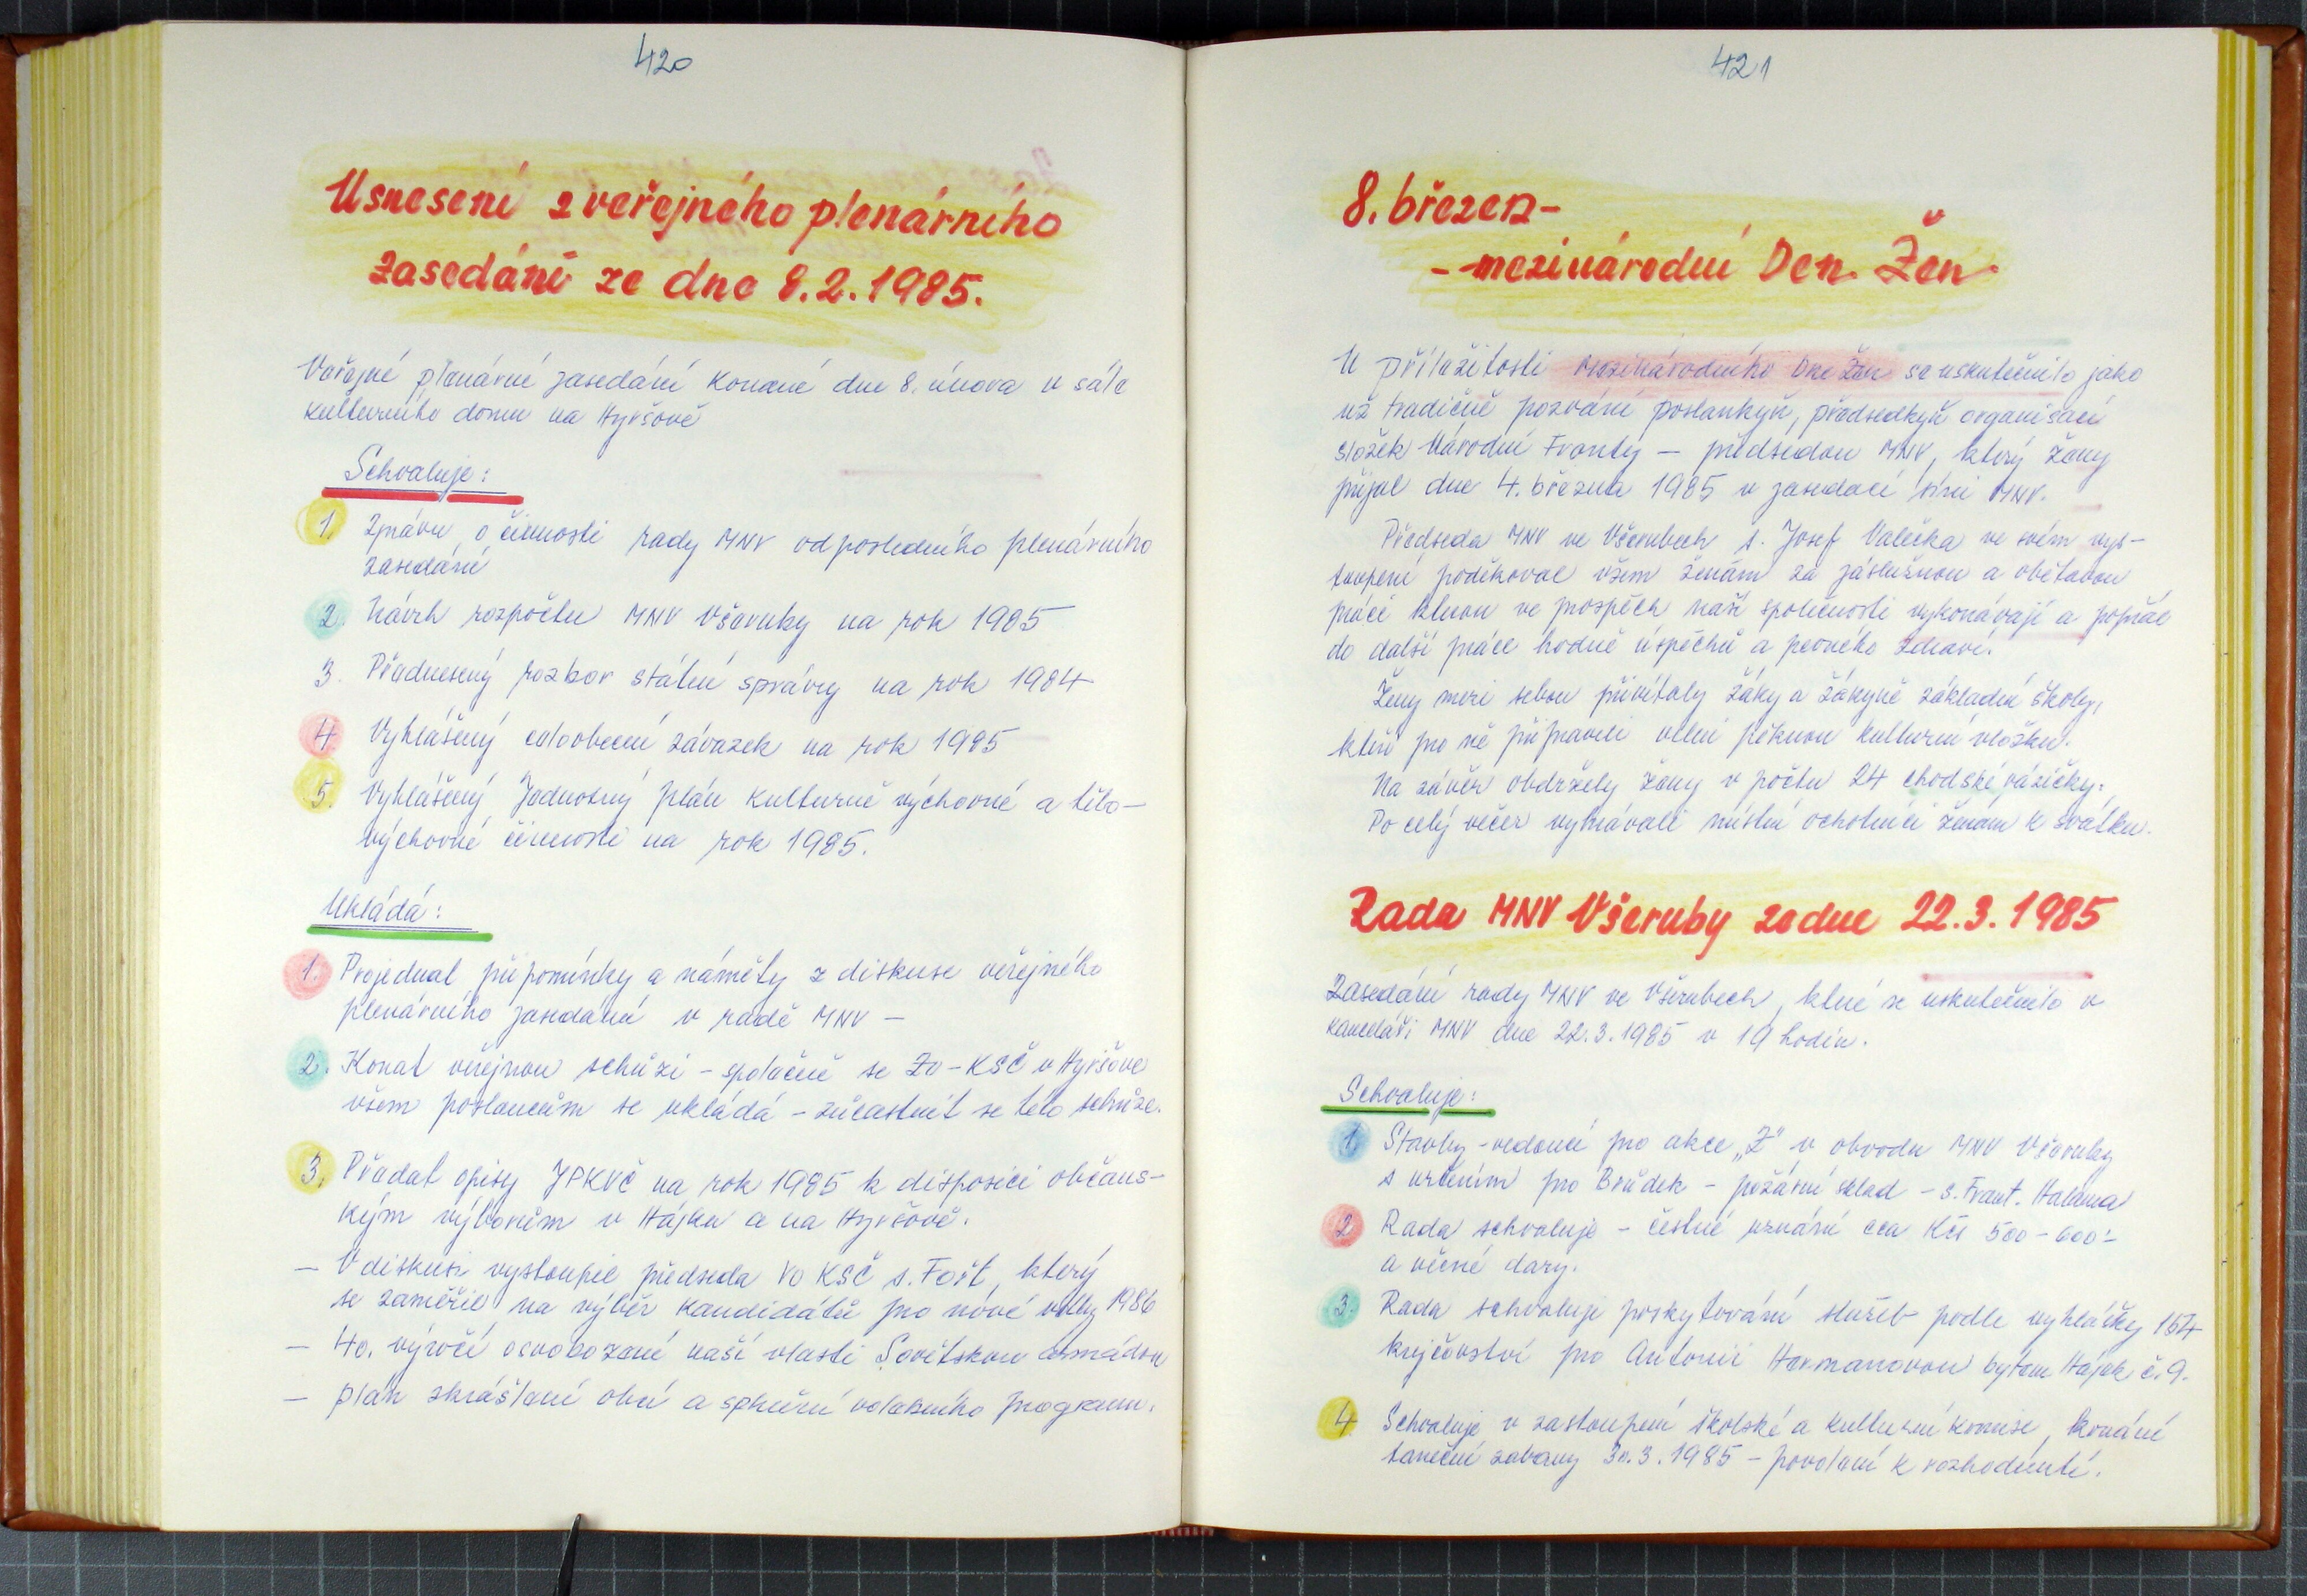 420
Usnesení z veřejného plenárního
zasedání ze dne 8.2.1985.
Veřejné plenární zasedání konané dne 8. února v sále
kulturního domu na Hyršově
Schvaluje:
1. Zprávu o činnosti rady MNV od posledního plenárního
zasedání
2. Návrh rozpočtu MNV Všeruby na rok 1985
3. Přednesený rozbor státní správy na rok 1984
4 Vyhlášený celoobecní závazek na rok 1985
5. Vyhlášený Jednotný plán kulturně výchovné a tělo-
výchovné činnosti na rok 1985.
Ukládá:
1. Projednat připomínky a náměty z diskuse veřejného
plenárního zasedání v radě MNV –
2. Konat veřejnou schůzi – společně se ZO – KSČ v Hyršově
všem poslancům se ukládá – zúčastnit se této schůze.
3. Předat opisy JPKVČ na rok 1985 k disposici občans-
kým výborům v Hájku a na Hyršově.
– V diskusi vystoupil předseda VO KSČ s. Fořt, který
se zaměřil na výběr kandidátů pro nové volby 1986
– 40. výročí osvobození naší vlasti Sovětskou armádou
– plán zkrášlení obcí a splnění volebního programu.
421
8. březen –
– mezinárodní Den Žen
U příležitosti Mezinárodního Dne Žen se uskutečnilo jako
už tradičně pozvání poslankyň, předsedkyň organisací
složek Národní Fronty – předsedou MNV, který ženy
přijal dne 4. března 1985 v zasedací síni MNV.
Předseda MNV ve Všerubech s. Josef Valečka ve svém vys-
toupení poděkoval všem ženám za záslužnou a obětavou
práci kterou ve prospěch naší společnosti vykonávají a popřál
do další práce hodně úspěchů a pevného zdraví.
Ženy mezi sebou přivítaly žáky a žákyně základní školy,
kteří pro ně připravili velmi pěknou kulturní vložku.
Na závěr obdržely ženy v počtu 24 chodské vázičky.
Po celý večer vyhrávali místní ochotníci ženám k svátku.
Rada MNV Všeruby ze dne 22.3.1985
Zasedání rady MNV ve Všerubech, které se uskutečnilo v
kanceláři MNV dne 22.3.1985 v 19 hodin.
Schvaluje:
1. Stavby – vedoucí pro akce „Z" v obvodu MNV Všeruby
s určením pro Brůdek – požární sklad – s. Frant. Halama
2 Rada schvaluje – čestné uznání cca Kčs 500 – 600.-
a věcné dary.
3. Rada schvaluje poskytování služeb podle vyhlášky 154
krejčovství pro Antonii Hermanovou bytem Hájek č. 9.
4 Schvaluje v zastoupení školské a kulturní komise, konání
taneční zábavy 30.3.1985 – povolení k rozhodnutí.